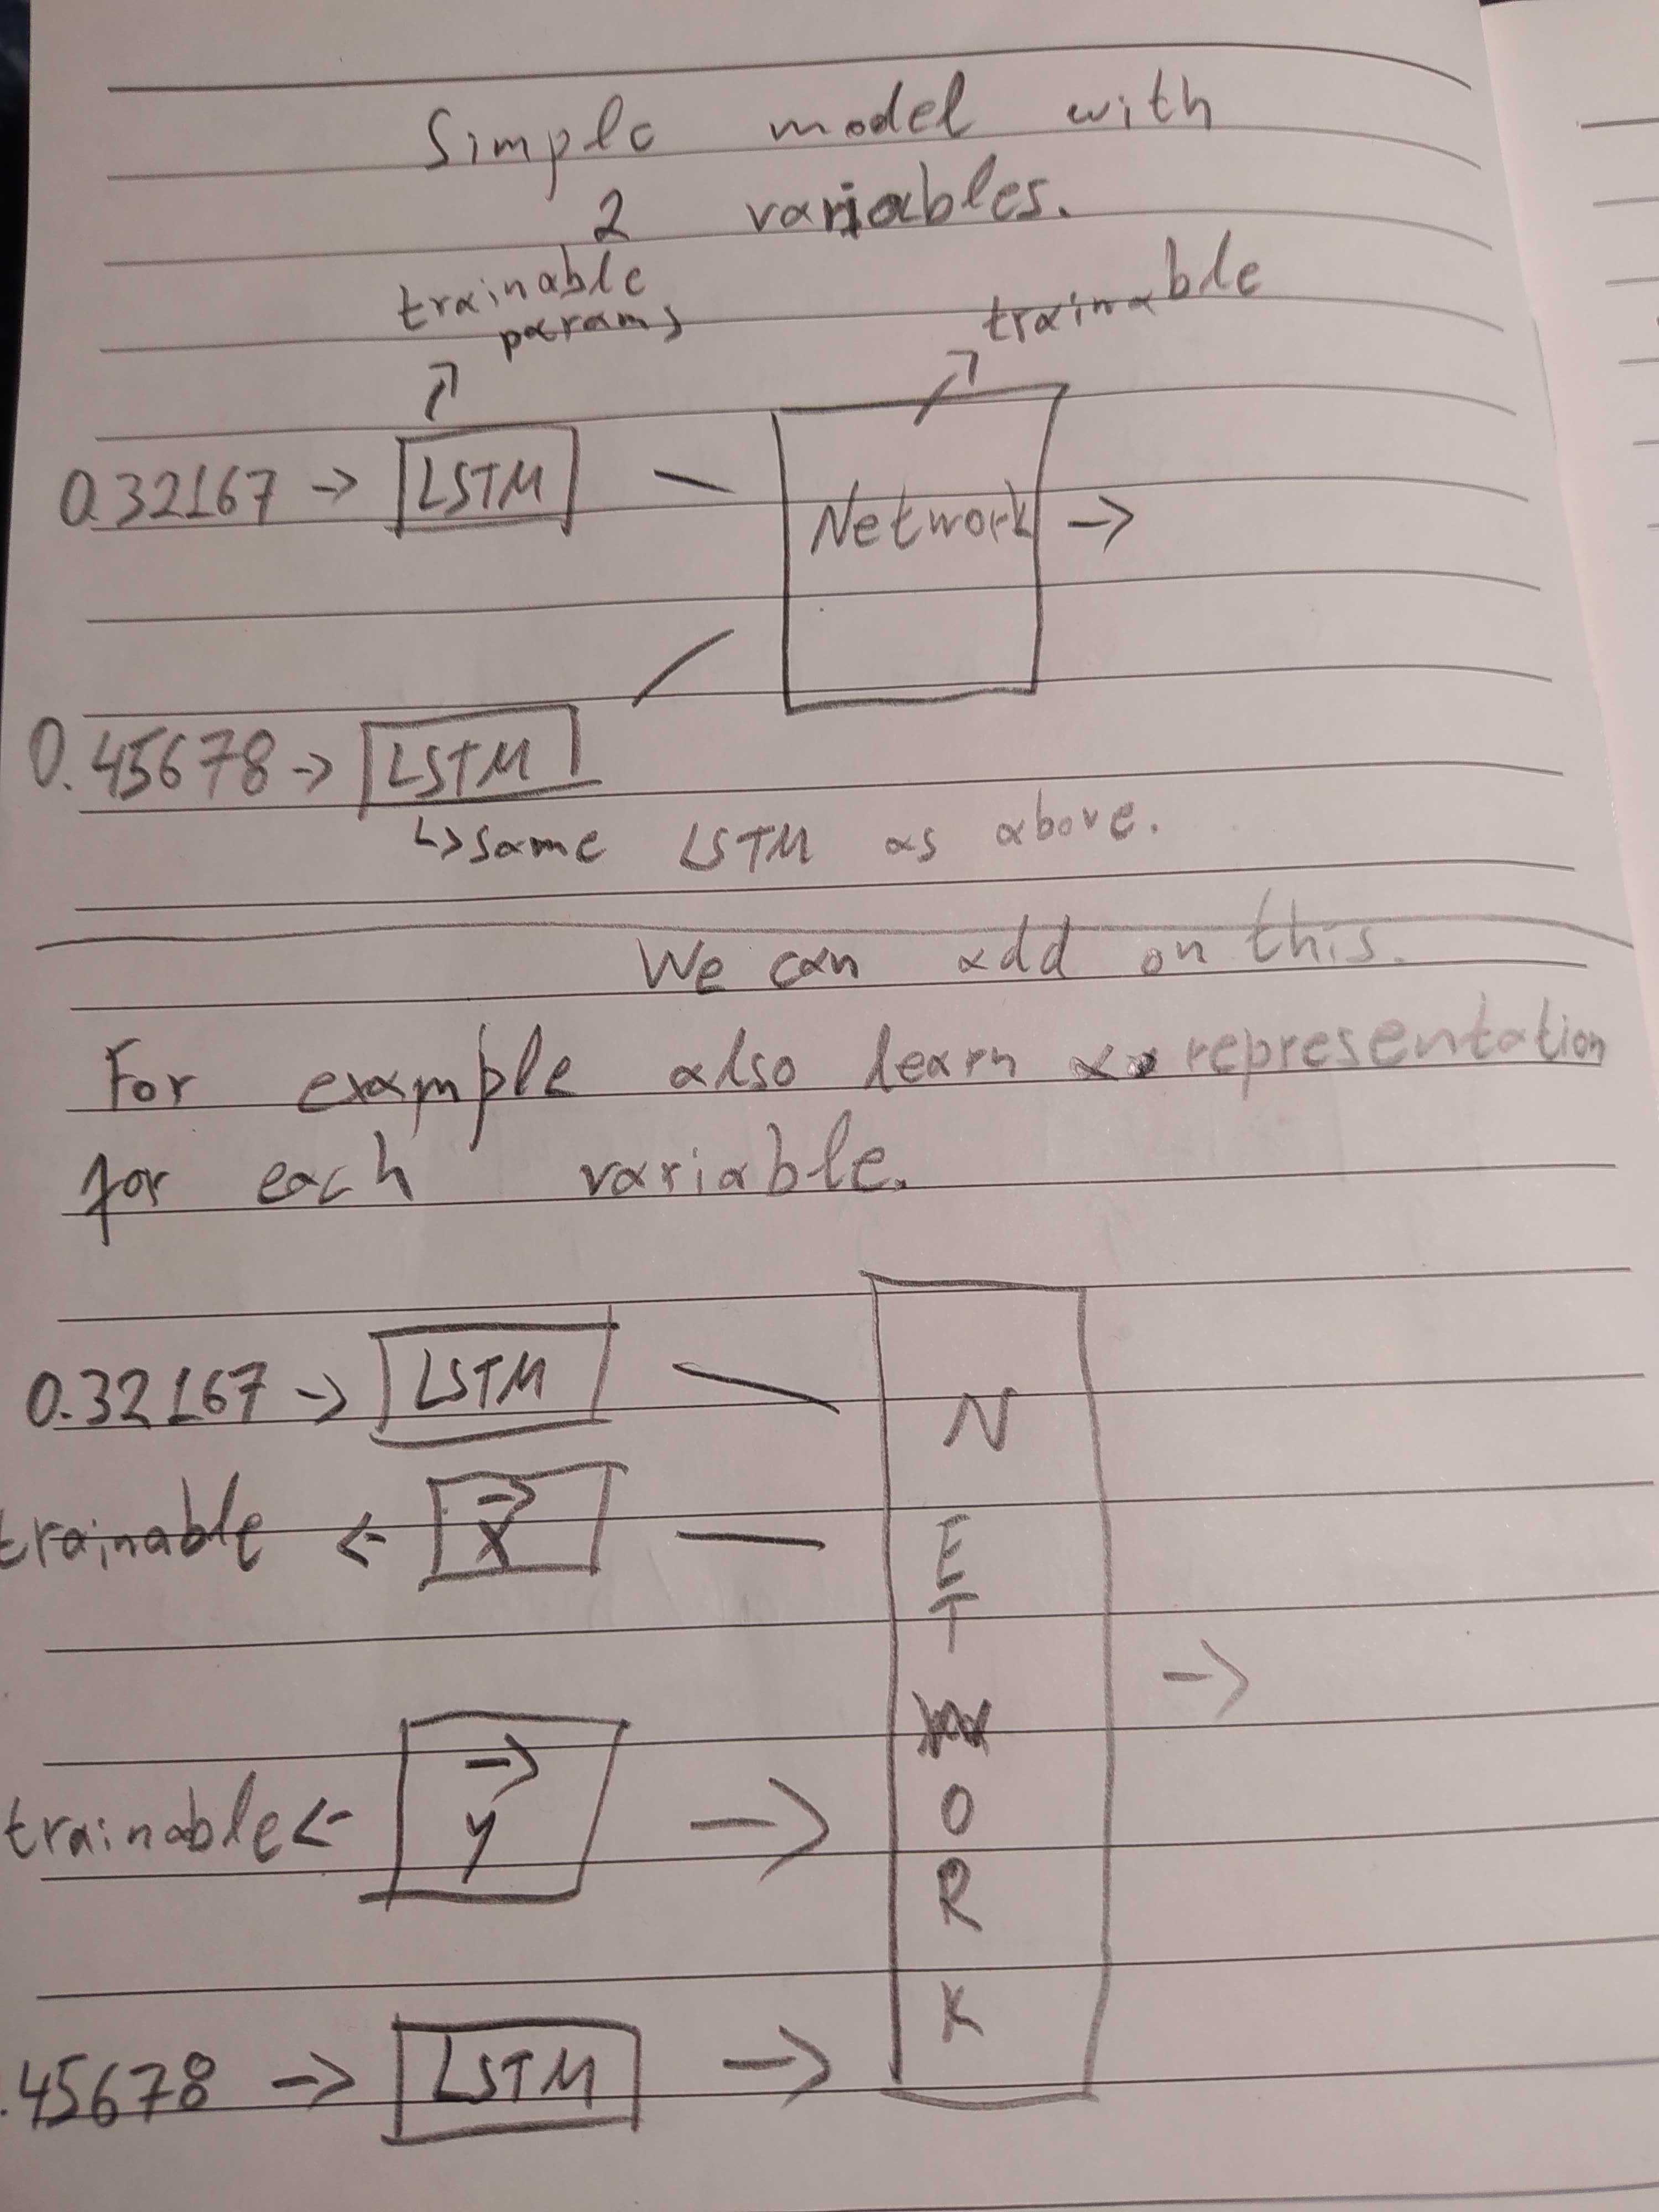 Simple model with
2 variables.
trainable
params
trainable
0.32167 → LSTM
Network →
0.45678 → LSTM
↳ same LSTM as above.
We can add on this.
For example also learn a representation
for each variable.
0.32167 → LSTM
trainable ← x⃗
trainable ← y⃗ →
.45678 → LSTM →
N
E
T
W
O
R
K
→